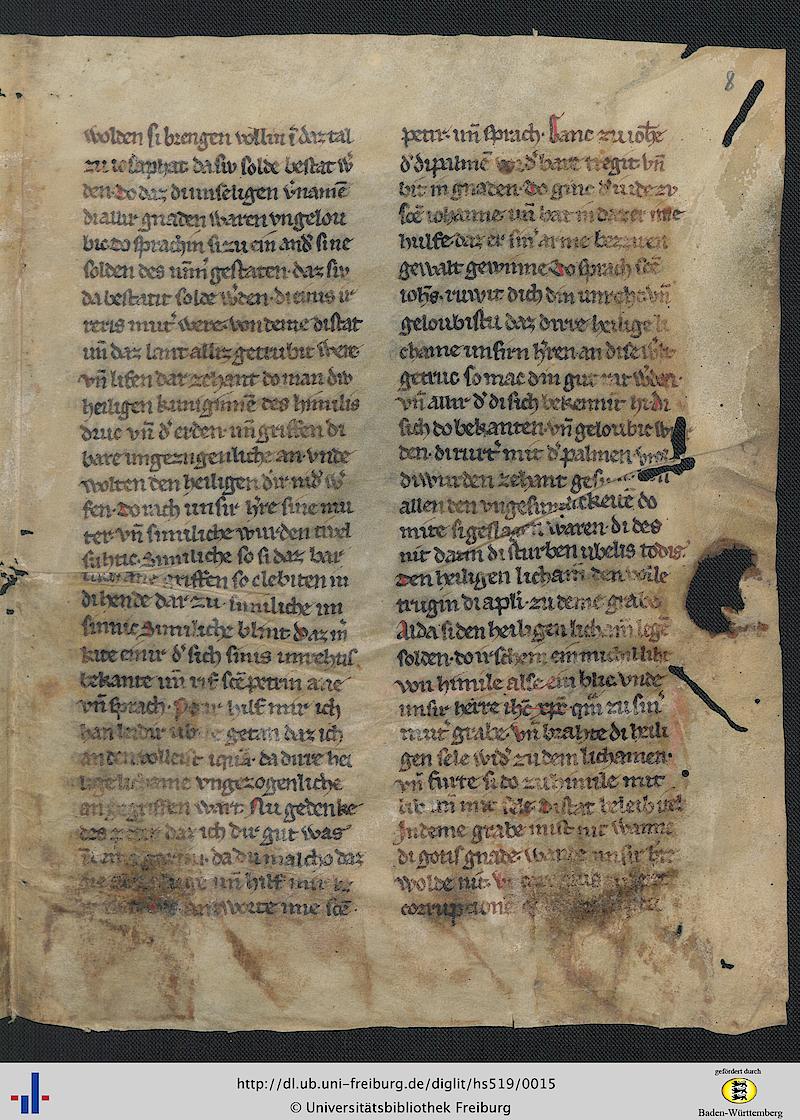 8
wolden si brengen vollin ī daz tal
zu iosaphat da siv solde bestat w̄
den do daz di unseligen v̄namē
di allir gnaden waren vngelou
bic do sprachin si zu ein and̄ si ne
solden des nūm̄ gestaten daz siv
da bestatit solde w̄den di einis ir
reris mut̄ were von deme di stat
uñ daz lant alliz getrubit were
vñ lifen dar zehant do man div
heiligen kuniginnē des himilis
druc vñ d̄ erden uñ griffen di
bare ungezugenliche an vnde
wolten den heiligen dir nid̄ w̄
fen do rach unsir h̄re sine mu
ter vñ sumiliche wurden
sumiliche so si daz bar
griffen so clebiten in
di hende dar zu sumiliche un
sinnic sumiliche blint Daz in̄
kite einir d̄ sich sinis unrehtis
bekante uñ rif scē petrum ane
vñ sprach hilf mir ich
han leidir getan daz ich
an den volleist da dirre hei
lige lichame vngezogenliche
an gegriffen wart Nu gedenke
des daz ich dir gut was
da du malcho daz
uñ hilf mir
antworte mie scē
petir uñ sprach Ganc zu iohē
d̄ di palmē vor d̄ bare tregit vñ
bit in gnaden do ginc d̄ iude zv
scē iohanne uñ bat in daz er ime
hulfe daz er sin̄ arme
gewalt gewinne Do sprach scē
iohs̄ ruwit dich din unreht vñ
geloubistu daz dirre heilige li
chame unsirn h̄ren an dise w̄lt
getruc so mac din gut rat w̄den
vñ allir d̄ di sich bekennit hi di
sich do bekanten vñ geloubic w̄
den di rurt̄ mit d̄ palmen
di wurden zehant
allen den
mite si geslagen waren di des
nit datin di sturben ubelis todis
Den heiligen licham̄ den
trugin di apl̄i zu deme grabe
Alda si den heiligen licham̄ legē
solden do irschein ein michil liht
von himile alse ein blic vnde
unsir herre ihc̄ xpc̄ quā zu sin̄
mut̄ grabe vñ brahte di heili
gen sele wid̄ zu dem lichamen
vñ furte si do zu himile mit
libe uñ mit sele Di stat beleib
In deme grabe nist nit wanne
di gotis gnade wande unsir h̄re
wolde nit
corruptionē
http://dl.ub.uni-freiburg.de/diglit/hs519/0015
© Universitätsbibliothek Freiburg
gefördert durch
Baden-Württemberg